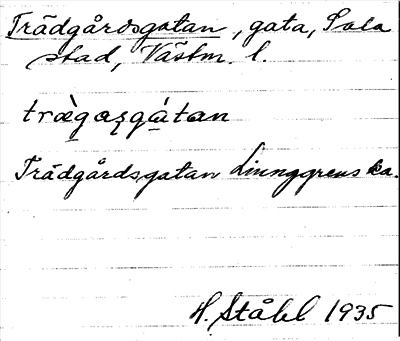 Trädgårdsgatan, gata, Sala
stad, Västm. l.
trägazgátan
Trädgårdsgatan Linnggrens ka.
H. Ståhl 1935